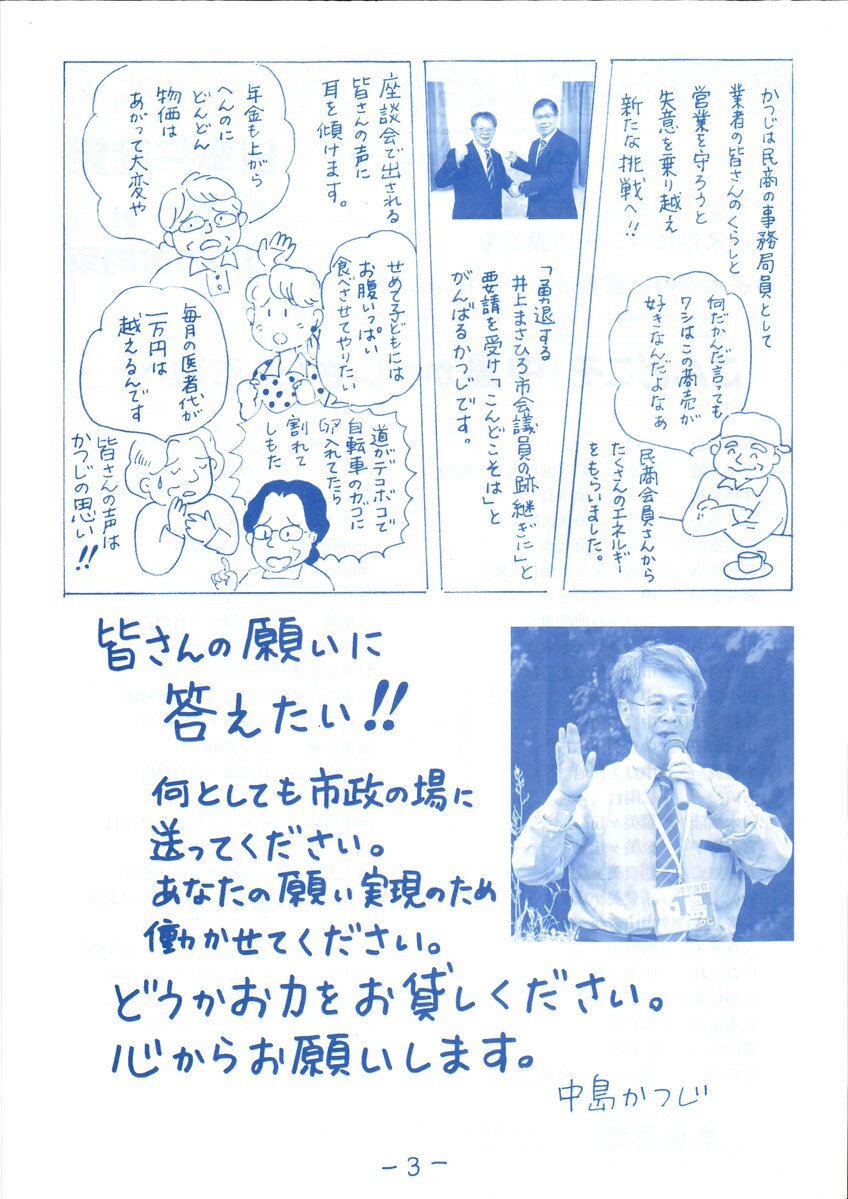 かつじは民商の事務局員として
業者の皆さんのくらしと
営業を守ろうと
失意を乗り越え
新たな挑戦へ!!
何だかんだ言っても
ワシはこの商売が
好きなんだよなぁ
民商会員さんから
たくさんのエネルギー
をもらいました。
「勇退する
井上まさひろ市会議員の跡継ぎに」と
要請を受け「こんどこそは」と
がんばるかつじです。
座談会で出される
皆さんの声に
耳を傾けます。
年金も上がら
へんのに
どんどん
物価は
あがって大変や
せめて子どもには
お腹いっぱい
食べさせてやりたい
毎月の医者代が
一万円は
越えるんです
道がデコボコで
自転車のカゴに
卵入れてたら
割れて
しもた
皆さんの声は
かつじの思い!!
皆さんの願いに
答えたい!!
何としても市政の場に
送ってください。
あなたの願い実現のため
働かせてください。
どうかお力をお貸しください。
心からお願いします。
中島かつじ
中島
-3-